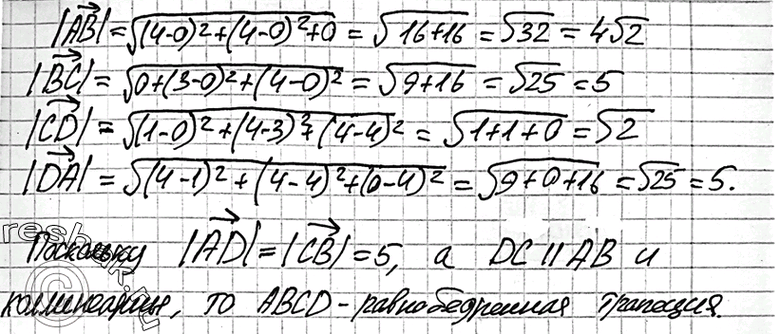 |AB| = √((4-0)²+(4-0)²+0) = √(16+16) = √32 = 4√2
|BC| = √(0+(3-0)²+(4-0)²) = √(9+16) = √25 = 5
|CD| = √((1-0)²+(4-3)²+(4-4)²) = √(1+1+0) = √2
|DA| = √((4-1)²+(4-4)²+(0-4)²) = √(9+0+16) = √25 = 5.
Поскольку |AD| = |CB| = 5, а DC || AB и
коллинеарны, то ABCD - равнобедренная трапеция.